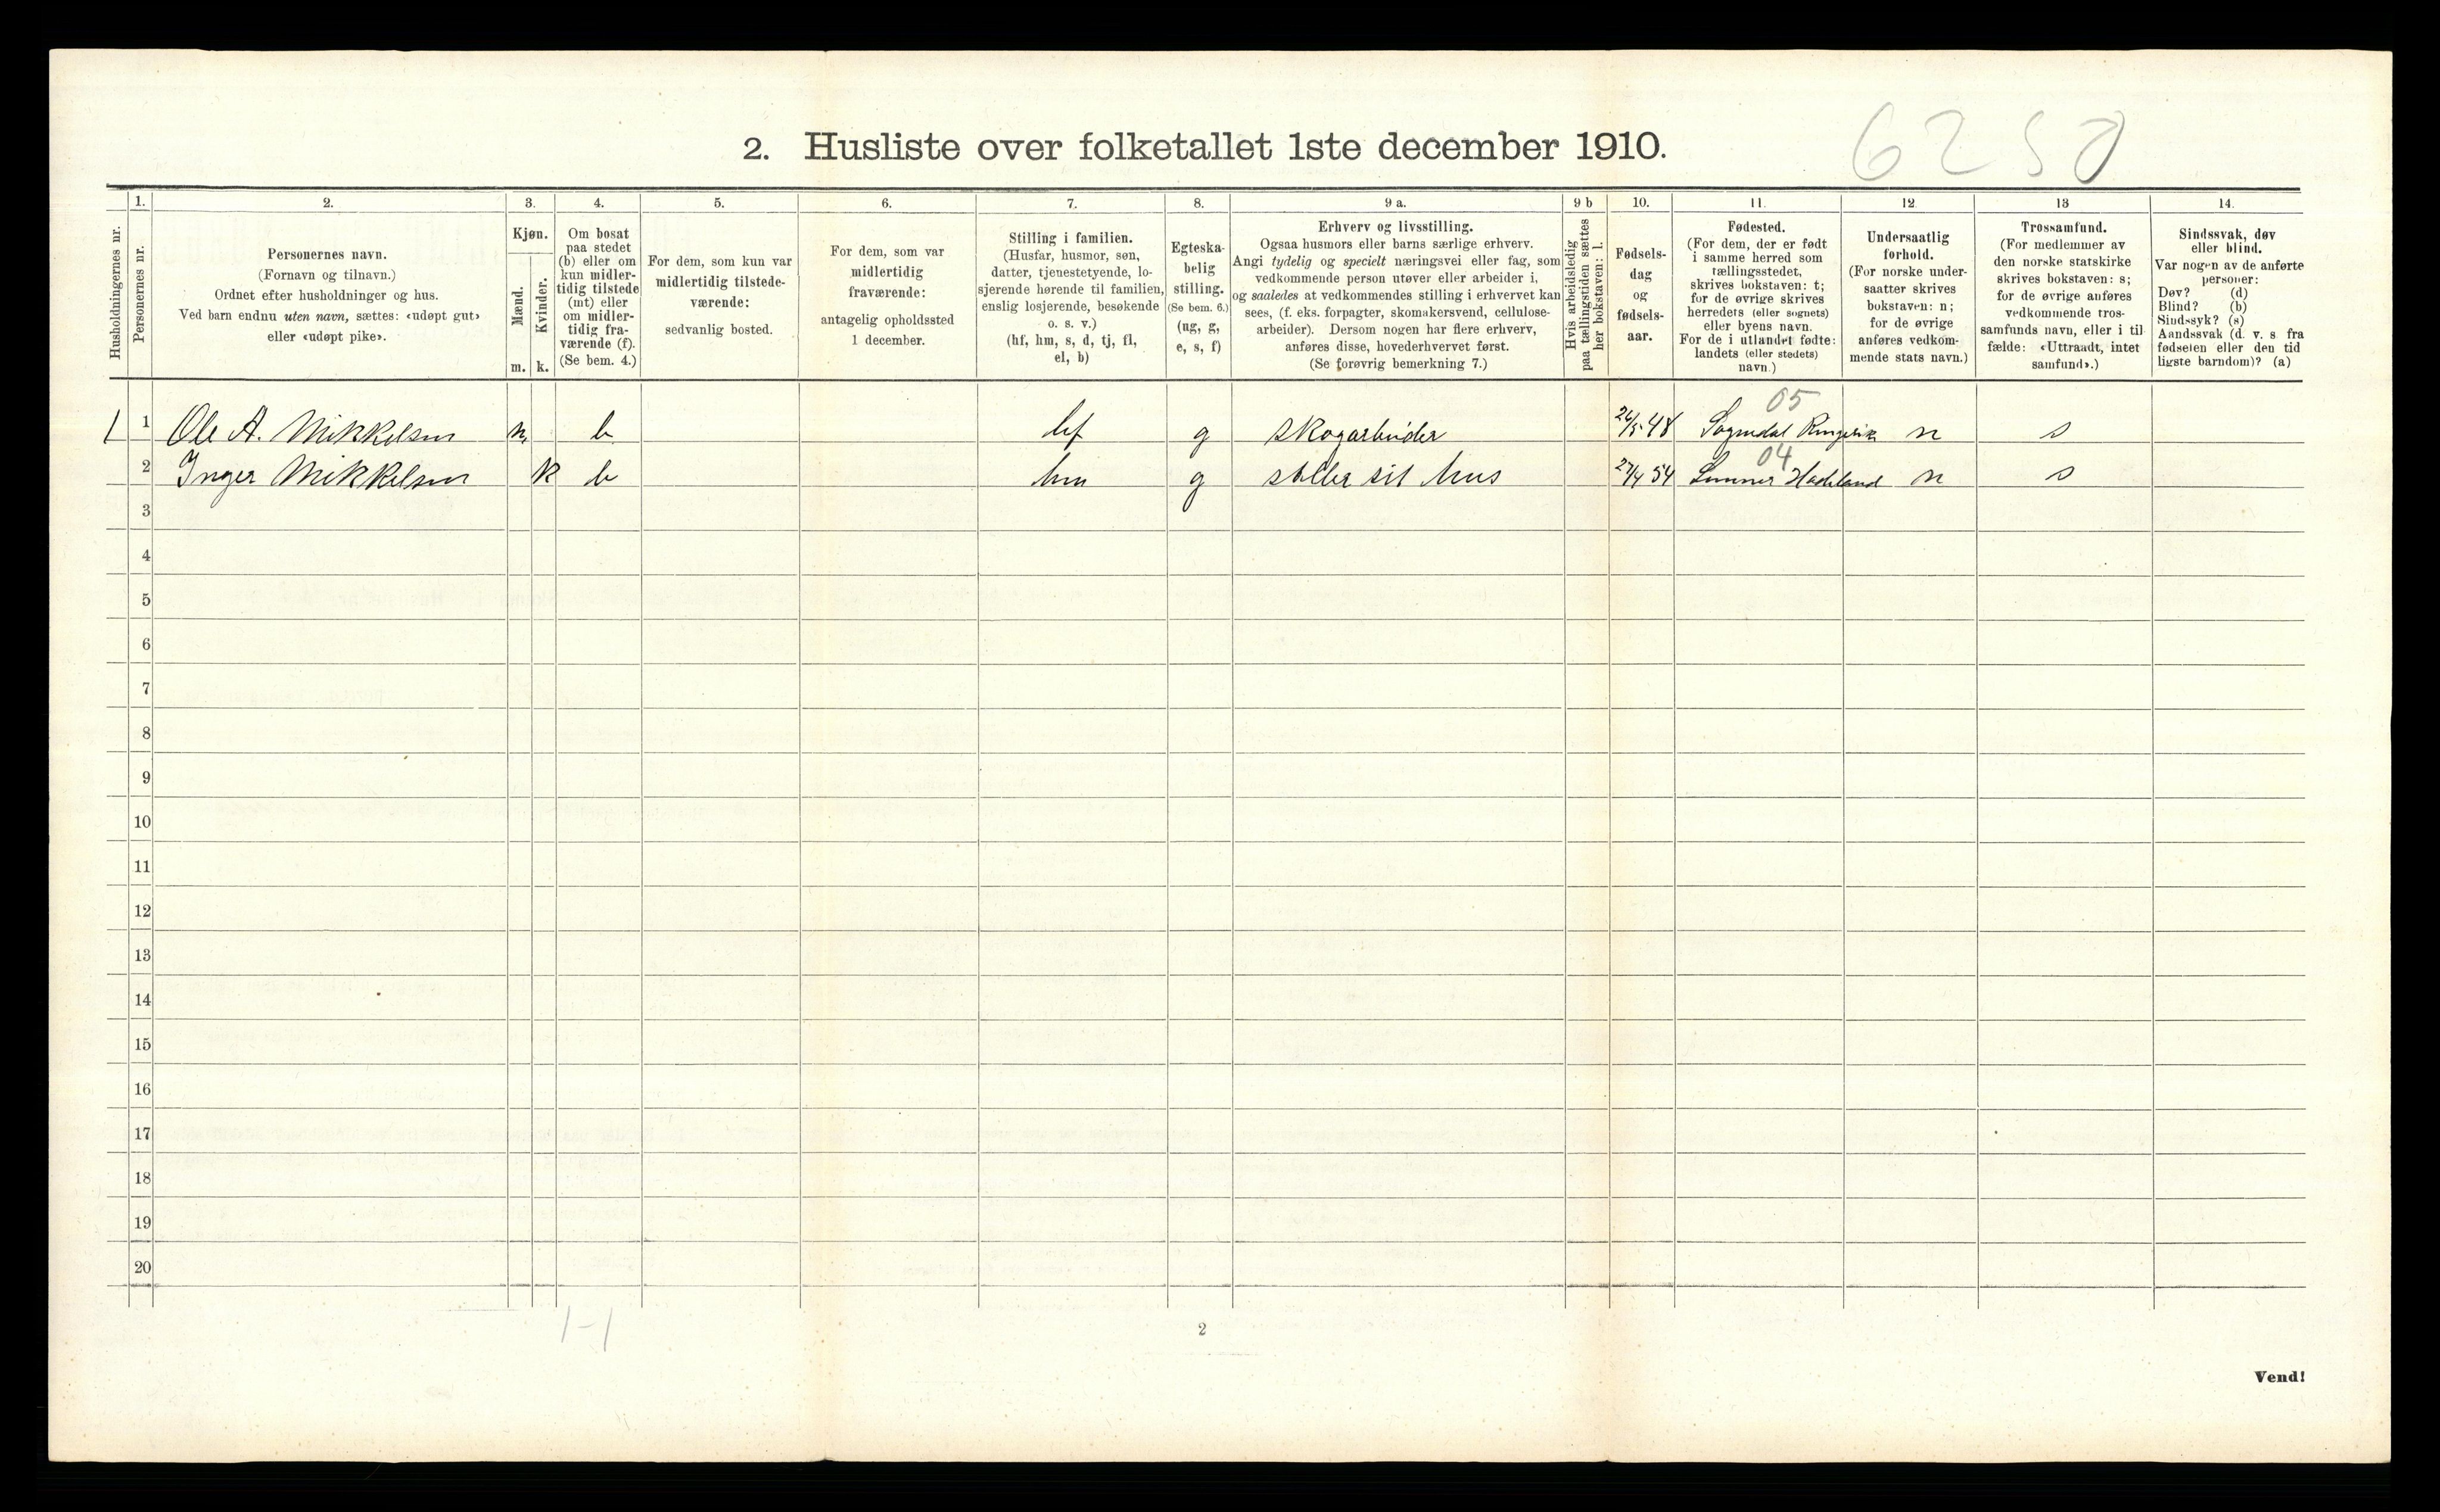 6250
2. Husliste over folketallet 1ste december 1910.
Husholdningernes nr.
1.
Personernes nr.
2.
Personernes navn.
(Fornavn og tilnavn.)
Ordnet efter husholdninger og hus.
Ved barn endnu uten navn, sættes: «udøpt gut»
eller «udøpt pike».
3.
Kjøn.
Mænd.
Kvinder.
m. k.
4.
Om bosat
paa stedet
(b) eller om
kun midler-
tidig tilstede
(mt) eller
om midler-
tidig fra-
værende (f).
(Se bem. 4.)
5.
For dem, som kun var
midlertidig tilstede-
værende:
sedvanlig bosted.
6.
For dem, som var
midlertidig
fraværende:
antagelig opholdssted
1 december.
7.
Stilling i familien.
(Husfar, husmor, søn,
datter, tjenestetyende, lo-
sjerende hørende til familien,
enslig losjerende, besøkende
o. s. v.)
(hf, hm, s, d, tj, fl,
el, b)
8.
Egteska-
belig
stilling.
(Se bem. 6.)
(ug, g,
e, s, f)
9 a.
Erhverv og livsstilling.
Ogsaa husmors eller barns særlige erhverv.
Angi tydelig og specielt næringsvei eller fag, som
vedkommende person utøver eller arbeider i,
og saaledes at vedkommendes stilling i erhvervet kan
sees, (f. eks. forpagter, skomakersvend, cellulose-
arbeider). Dersom nogen har flere erhverv,
anføres disse, hovederhvervet først.
(Se forøvrig bemerkning 7.)
9 b
Hvis arbeidsledig
paa tællingstiden sættes
her bokstaven: l.
10.
Fødsels-
dag
og
fødsels-
aar.
11.
Fødested.
(For dem, der er født
i samme herred som
tællingsstedet,
skrives bokstaven: t;
for de øvrige skrives
herredets (eller sognets)
eller byens navn.
For de i utlandet fødte:
landets (eller stedets)
navn.)
12
Undersaatlig
forhold.
(For norske under-
saatter skrives
bokstaven: n;
for de øvrige
anføres vedkom-
mende stats navn.)
13
Trossamfund.
(For medlemmer av
den norske statskirke
skrives bokstaven: s;
for de øvrige anføres
vedkommende tros-
samfunds navn, eller i til
fælde: «Uttraadt, intet
samfund».)
14.
Sindssvak, døv
eller blind.
Var nogen av de anførte
personer:
Døv? (d)
Blind? (b)
Sindssyk? (s)
Aandssvak (d. v. s fra
fødselen eller den tid
ligste barndom)? (a)
05
1 1 Ole A. Mikkelsen m b hf g skogarbeider 26/5 48 Sogndal Ringerik n s
04
2 Inger Mikkelsen k b hm g steller sit hus 27/4 54 Lunner Hadeland n s
3
4
5
6
7
8
9
10
11
12
13
14
15
16
17
18
19
20
1-1
2
Vend!